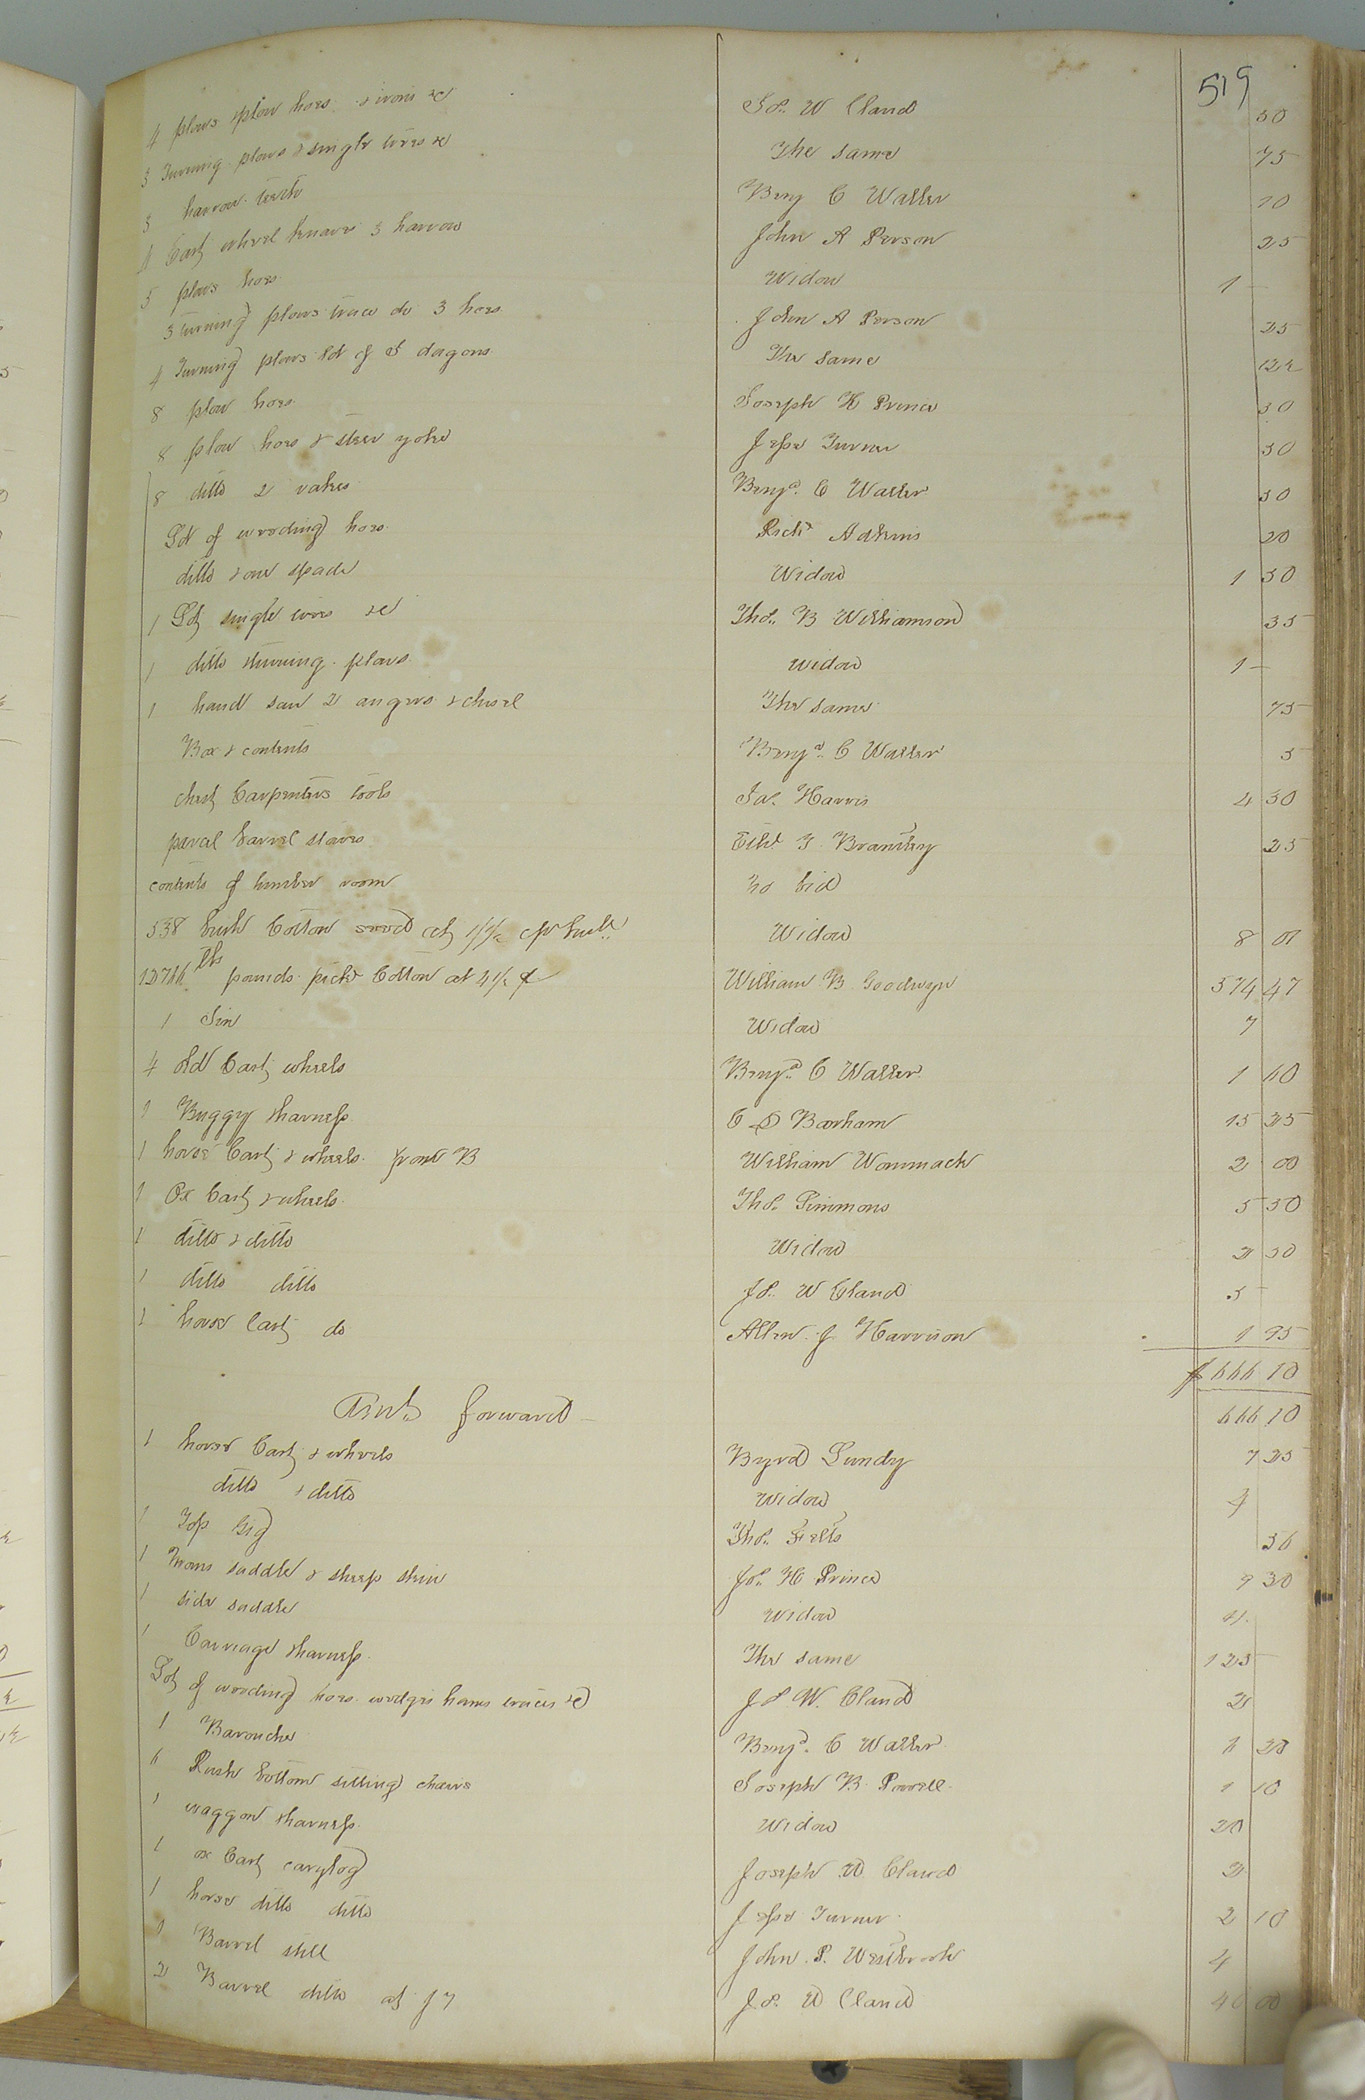 519
4 plows & plow hoes & irons &c Jos. W Claud 50
3 Turning plows & single trees &c The same 75
3 harrow teeth Benj C Waller 10
1 Cart wheel 3 harrows John A Person 25
5 plow hoes Widow 1 -
3 turning plows trace do 3 hoes John A Person 25
4 Turning plows Lot of The same 12½
8 plow hoes Joseph H Prince 50
8 plow hoes & steer yoke Jesse Turner 50
8 ditto 2 rakes Benjn. C Waller 50
Lot of weeding hoes Richd Adkins 20
ditto & one spade Widow 1 50
1 Lot single trees &c Thos. B Williamson 35
1 ditto & turning plows Widow 1 -
1 hand saw 2 augers & chisel The same 75
Box & contents Benjn. C Waller 5
chest Carpenters tools Jas. Harris 4 50
parcel barrel staves T Brantley 25
contents of lumber room no bid
538 bush Cotton seed at 1½ c pr bush Widow 8 07
12766 lbs pounds pickd Cotton at 4½ ¢ William B Goodwyn 574 47
1 Gin Widow 7
4 old Cart wheels Benjn. C Waller 1 60
1 Buggy & harness C D Barham 15 25
1 horse Cart & wheels from B William Wommack 2 00
1 Ox Cart & wheels Thos. Simmons 5 50
1 ditto & ditto Widow 2 50
1 ditto ditto Js. W Claud 5 -
1 horse Cart do Allen J Harrison 1 95
$666 10
Amt. forward 666 10
1 horse Cart & wheels Byrd Lundy 7 25
ditto & ditto Widow 4
1 Top Gig Thos. Felts 56
1 mans saddle & sheep skin Js. H Prince 9 50
1 side saddle Widow 4
1 Carriage & harness The same 125
Lot of weeding hoes wedges hams traces &c J S W. Claud 2
1 Barouche Benjn. C Waller 6 20
6 Rush bottom sitting chairs Joseph B. Powell 1 10
1 waggon & harness Widow 20
1 ox Cart carylog Joseph W Claud 2
1 horse ditto ditto Jesse Turner 2 10
1 Barrel still John P. Westbrook 4
2 Barrel ditto at $ Js. W Claud 00